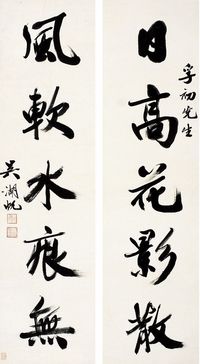 孚初先生
日高花影散
風軟水痕無
吳湖帆